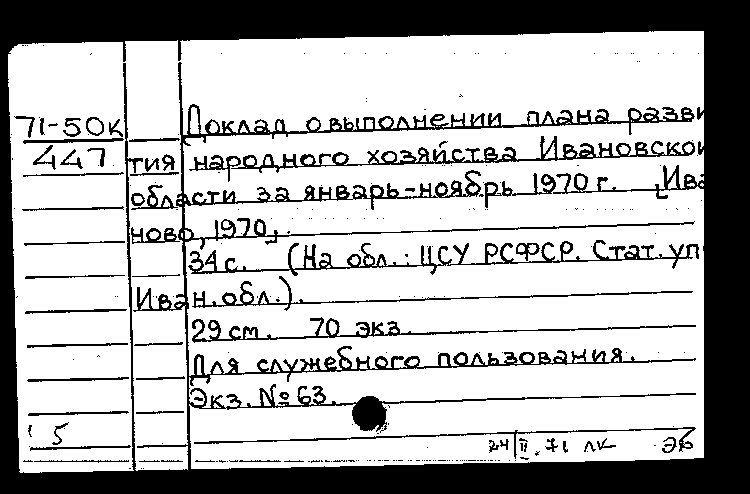 71-50к Доклад о выполнении плана разви
447 тия народного хозяйства Ивановской
области за январь-ноябрь 1970 г. [Ива
ново, 1970].
34 с. (На обл.: ЦСУ РСФСР. Стат. уп
Иван. обл.).
29 см. 70 экз.
Для служебного пользования.
Экз. № 63.
5
24/II.71 лк Эб